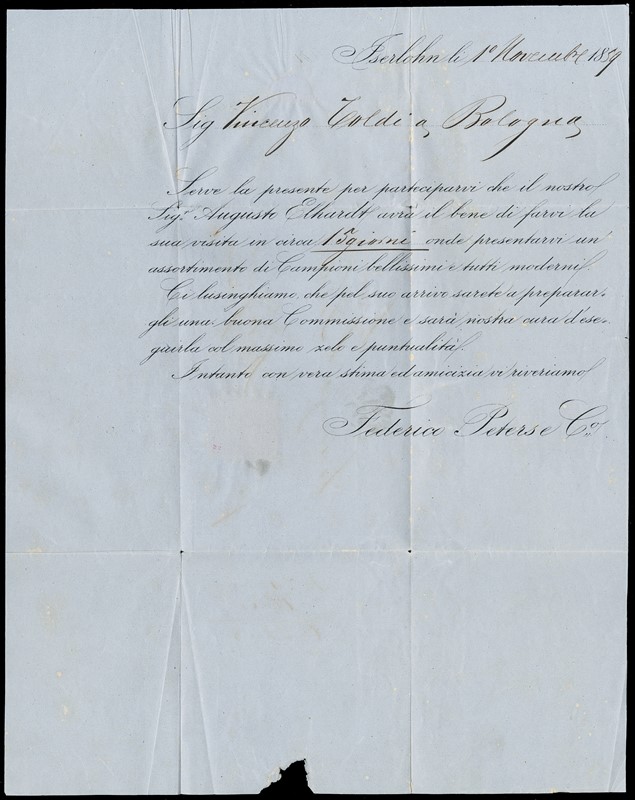 Iserlohn li 1º Novembre 1859
Sig Vincenzo Toldi a Bologna
Serve la presente per parteciparvi che il nostro
Sigr. Augusto Elhardt avrà il bene di farvi la
sua visita in circa 15 giorni onde presentarvi un
assortimento di Campioni bellissimi e tutti moderni.
Ci lusenghiamo, che pel suo arrivo sarete a preparar-
gli una buona Commissione e sarà nostra cura d'ese-
guirla col massimo zelo e puntualità.
Intanto con vera stima ed amicizia vi riveriamo
Federico Peters e Co.